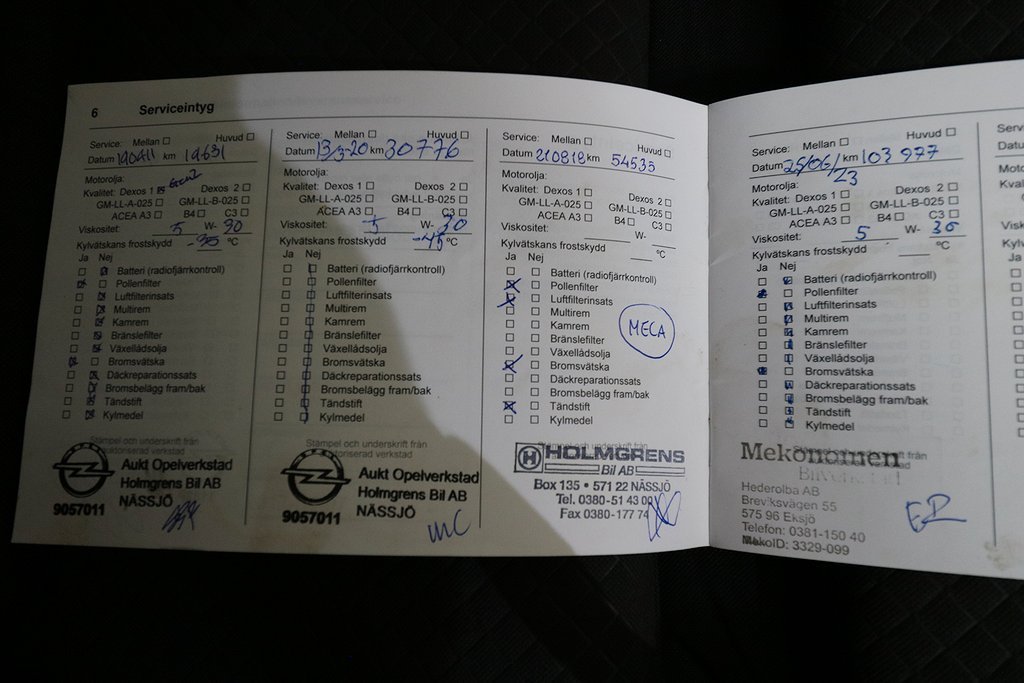 6 Serviceintyg
Service: Mellan ☐ Huvud ☐
Datum 190411 km 19631
Motorolja:
Kvalitet: Dexos 1 Dexos 2 ☐
GM-LL-A-025 ☐ GM-LL-B-025 ☐
ACEA A3 ☐ B4 ☐ C3 ☐
Viskositet: 5 W- 30
Kylvätskans frostskydd -35 °C
Ja Nej
Batteri (radiofjärrkontroll)
Pollenfilter
Luftfilterinsats
Multirem
Kamrem
Bränslefilter
Växellådsolja
Bromsvätska
Däckreparationssats
Bromsbelägg fram/bak
Tändstift
Kylmedel
Stämpel och underskrift från
auktoriserad verkstad
Aukt Opelverkstad
Holmgrens Bil AB
9057011 NÄSSJÖ
Service: Mellan ☐ Huvud ☐
Datum 13/3-20 km 30776
Motorolja:
Kvalitet: Dexos 1 ☐ Dexos 2 ☐
GM-LL-A-025 ☐ GM-LL-B-025 ☐
ACEA A3 ☐ B4 ☐ C3 ☐
Viskositet: 5 W- 30
Kylvätskans frostskydd -45 °C
Ja Nej
Batteri (radiofjärrkontroll)
Pollenfilter
Luftfilterinsats
Multirem
Kamrem
Bränslefilter
Växellådsolja
Bromsvätska
Däckreparationssats
Bromsbelägg fram/bak
Tändstift
Kylmedel
Stämpel och underskrift från
auktoriserad verkstad
Aukt Opelverkstad
Holmgrens Bil AB
9057011 NÄSSJÖ
Service: Mellan ☐ Huvud ☐
Datum 210818 km 54535
Motorolja:
Kvalitet: Dexos 1 ☐ Dexos 2 ☐
GM-LL-A-025 ☐ GM-LL-B-025 ☐
ACEA A3 ☐ B4 ☐ C3 ☐
Viskositet: W-
Kylvätskans frostskydd °C
Ja Nej
Batteri (radiofjärrkontroll)
Pollenfilter
Luftfilterinsats
Multirem
Kamrem
MECA
Bränslefilter
Växellådsolja
Bromsvätska
Däckreparationssats
Bromsbelägg fram/bak
Tändstift
Kylmedel
HOLMGRENS
Bil AB
Box 135 • 571 22 NÄSSJÖ
Tel. 0380-51 43 00
Fax 0380-177 74
Service: Mellan ☐ Huvud ☐
Datum 25/06/23 km 103 977
Motorolja:
Kvalitet: Dexos 1 ☐ Dexos 2 ☐
GM-LL-A-025 ☐ GM-LL-B-025 ☐
ACEA A3 ☐ B4 ☐ C3 ☐
Viskositet: 5 W- 30
Kylvätskans frostskydd °C
Ja Nej
Batteri (radiofjärrkontroll)
Pollenfilter
Luftfilterinsats
Multirem
Kamrem
Bränslefilter
Växellådsolja
Bromsvätska
Däckreparationssats
Bromsbelägg fram/bak
Tändstift
Kylmedel
Mekonomen
Bilverkstad
Hederolba AB
Breviksvägen 55
575 96 Eksjö
Telefon: 0381-150 40
MekoID: 3329-099